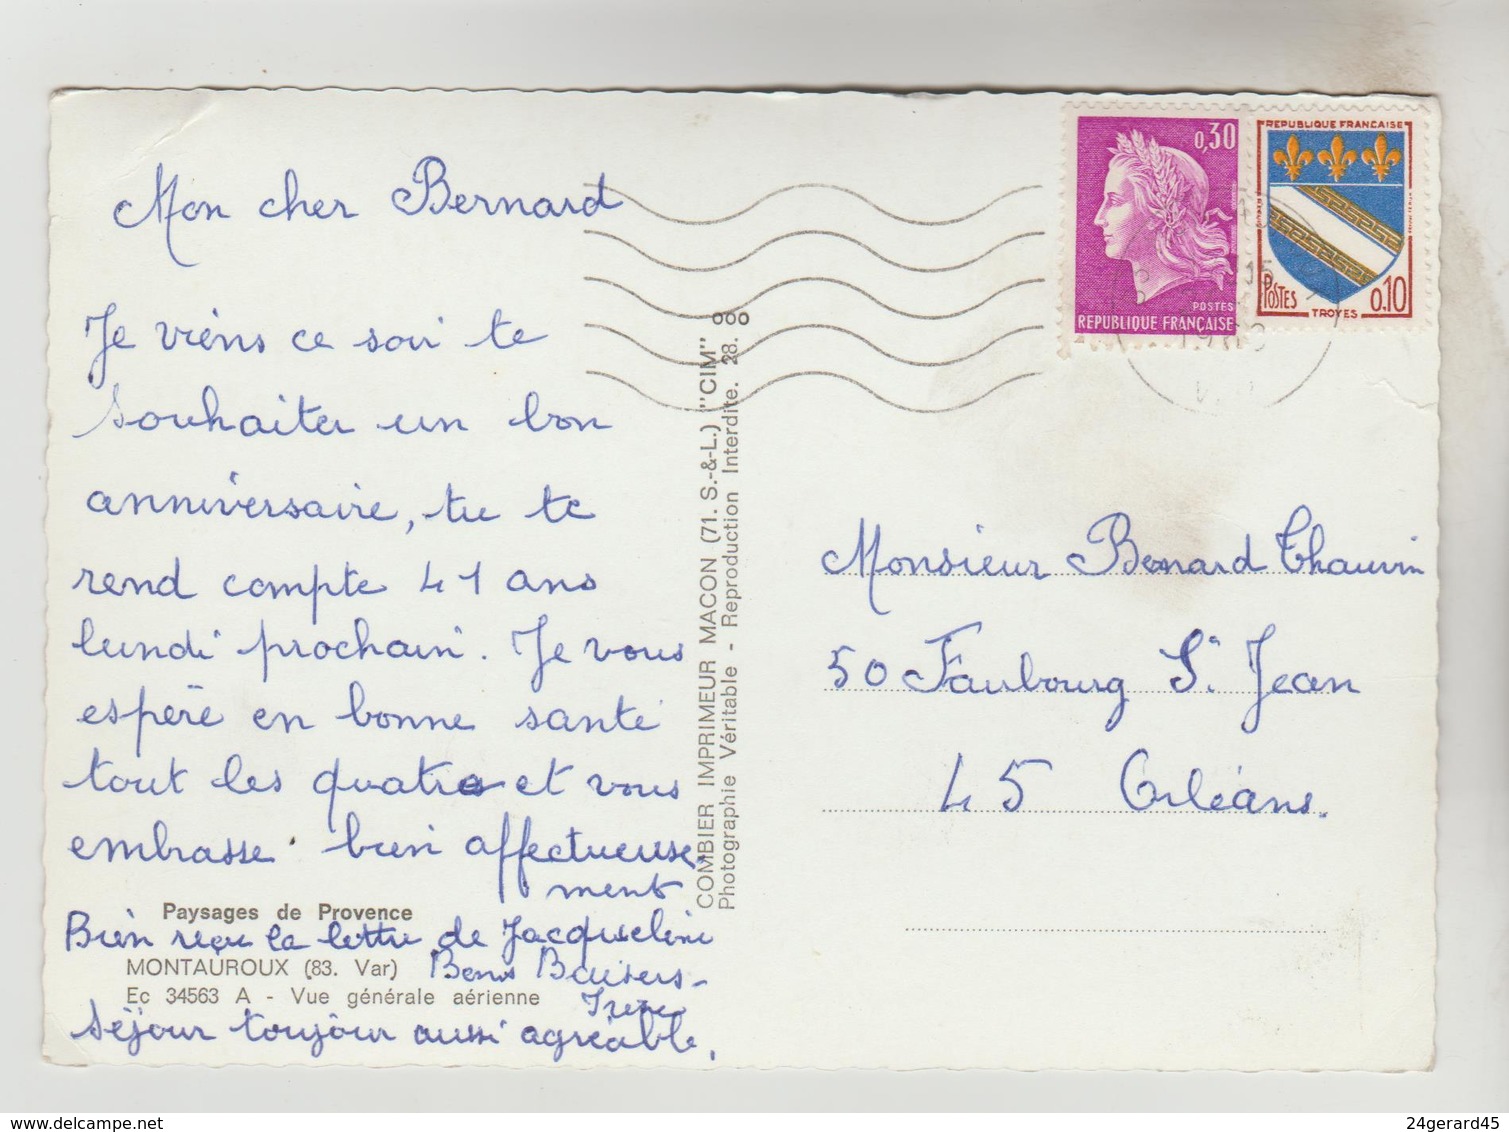 Mon cher Bernard
Je viens ce soir te
souhaiter un bon
anniversaire, tu te
rend compte 41 ans
lundi prochain. Je vous
espère en bonne santé
tout les quatre et vous
embrasse bien affectueuse
ment
Paysages de Provence
Bien reçu la lettre de Jacqueline
MONTAUROUX (83. Var)
Bons Baisers-
Ec 34563 A - Vue générale aérienne
Irène
séjour toujour aussi agréable.
COMBIER IMPRIMEUR MACON (71. S.-&-L.) "CIM"
Photographie Véritable - Reproduction Interdite. 28.
ooo
0,30
POSTES
REPUBLIQUE FRANÇAISE
REPUBLIQUE FRANÇAISE
POSTES
0,10
TROYES
15
Monsieur Bernard Chauvin
50 Faubourg St Jean
45 Orléans.
24gerard45